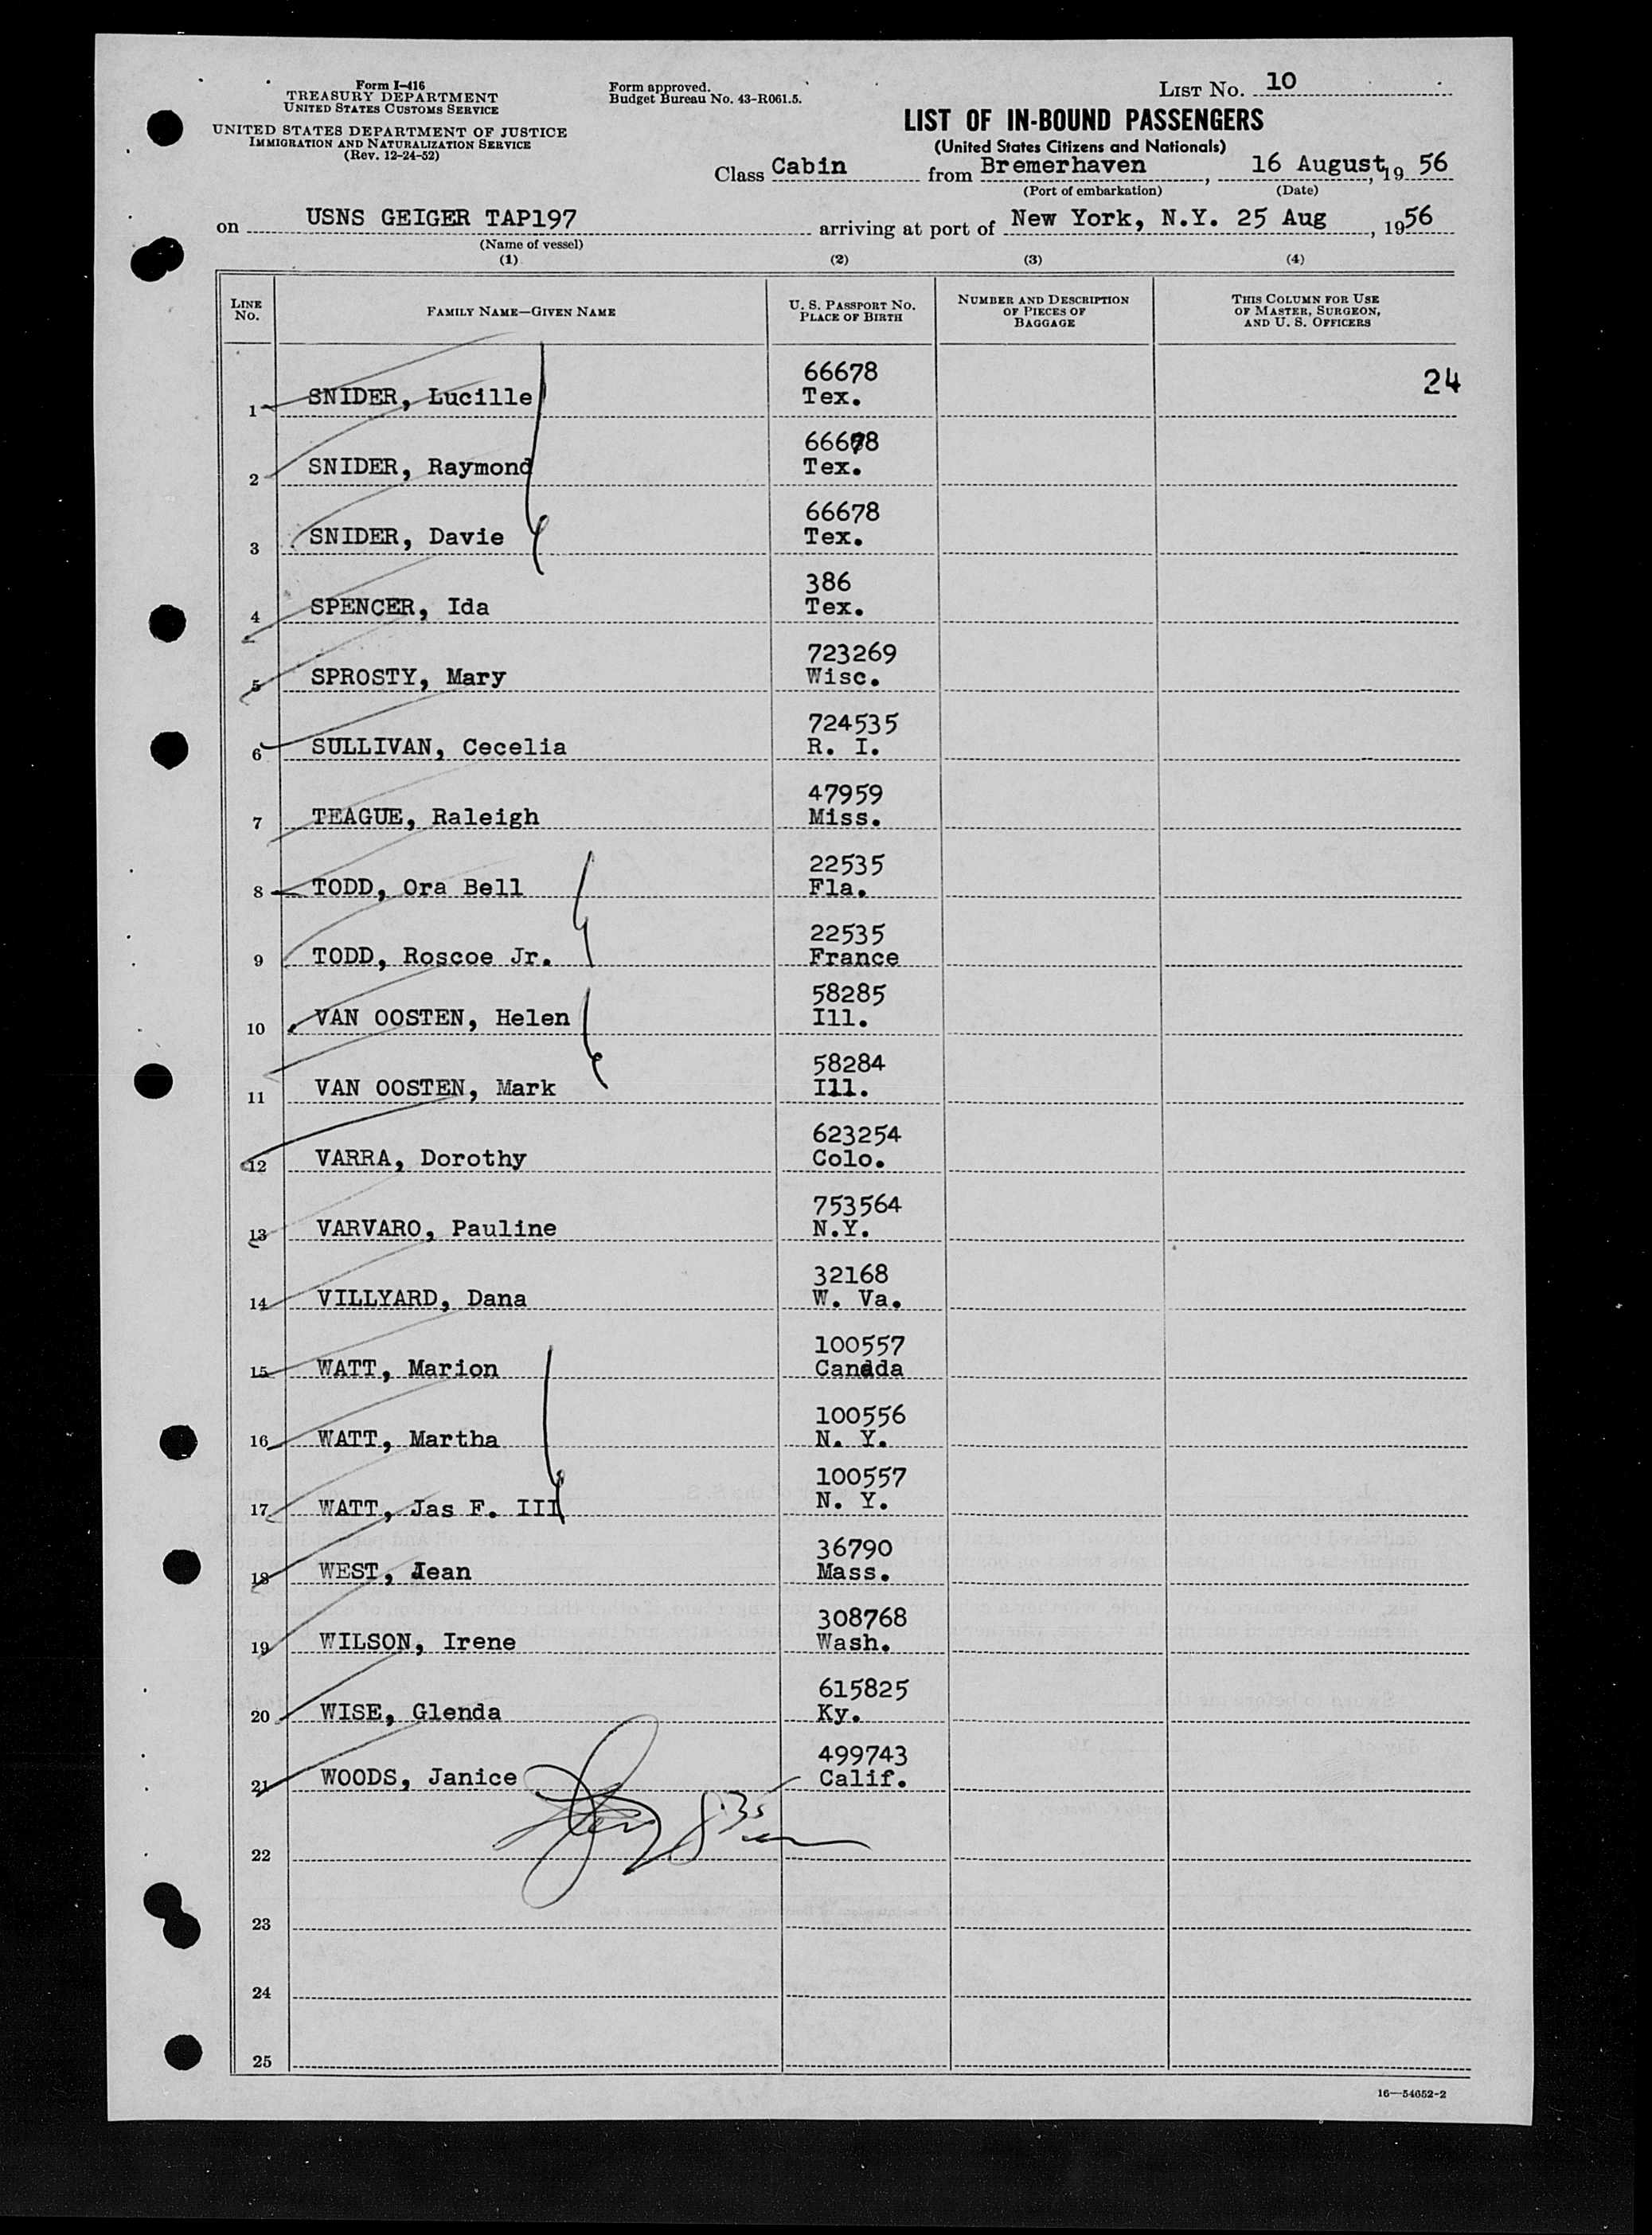 Form I-416
TREASURY DEPARTMENT
UNITED STATES CUSTOMS SERVICE
UNITED STATES DEPARTMENT OF JUSTICE
IMMIGRATION AND NATURALIZATION SERVICE
(Rev. 12-24-52)
Form approved.
Budget Bureau No. 43-R061.5.
LIST No. 10
LIST OF IN-BOUND PASSENGERS
(United States Citizens and Nationals)
Class Cabin from Bremerhaven, 16 August, 19 56
(Port of embarkation) (Date)
on USNS GEIGER TAP197 arriving at port of New York, N.Y. 25 Aug, 1956
(Name of vessel)
(1) (2) (3) (4)
LINE No. FAMILY NAME—GIVEN NAME U. S. PASSPORT NO. PLACE OF BIRTH NUMBER AND DESCRIPTION OF PIECES OF BAGGAGE THIS COLUMN FOR USE OF MASTER, SURGEON, AND U. S. OFFICERS
24
66678
1 SNIDER, Lucille Tex.
66678
2 SNIDER, Raymond Tex.
66678
3 SNIDER, Davie Tex.
386
4 SPENCER, Ida Tex.
723269
5 SPROSTY, Mary Wisc.
724535
6 SULLIVAN, Cecelia R. I.
47959
7 TEAGUE, Raleigh Miss.
22535
8 TODD, Ora Bell Fla.
22535
9 TODD, Roscoe Jr. France
58285
10 VAN OOSTEN, Helen Ill.
58284
11 VAN OOSTEN, Mark Ill.
623254
12 VARRA, Dorothy Colo.
753564
13 VARVARO, Pauline N.Y.
32168
14 VILLYARD, Dana W. Va.
100557
15 WATT, Marion Canada
100556
16 WATT, Martha N. Y.
100557
17 WATT, Jas F. III N. Y.
36790
18 WEST, Jean Mass.
308768
19 WILSON, Irene Wash.
615825
20 WISE, Glenda Ky.
499743
21 WOODS, Janice Calif.
22
23
24
25
16—54652-2